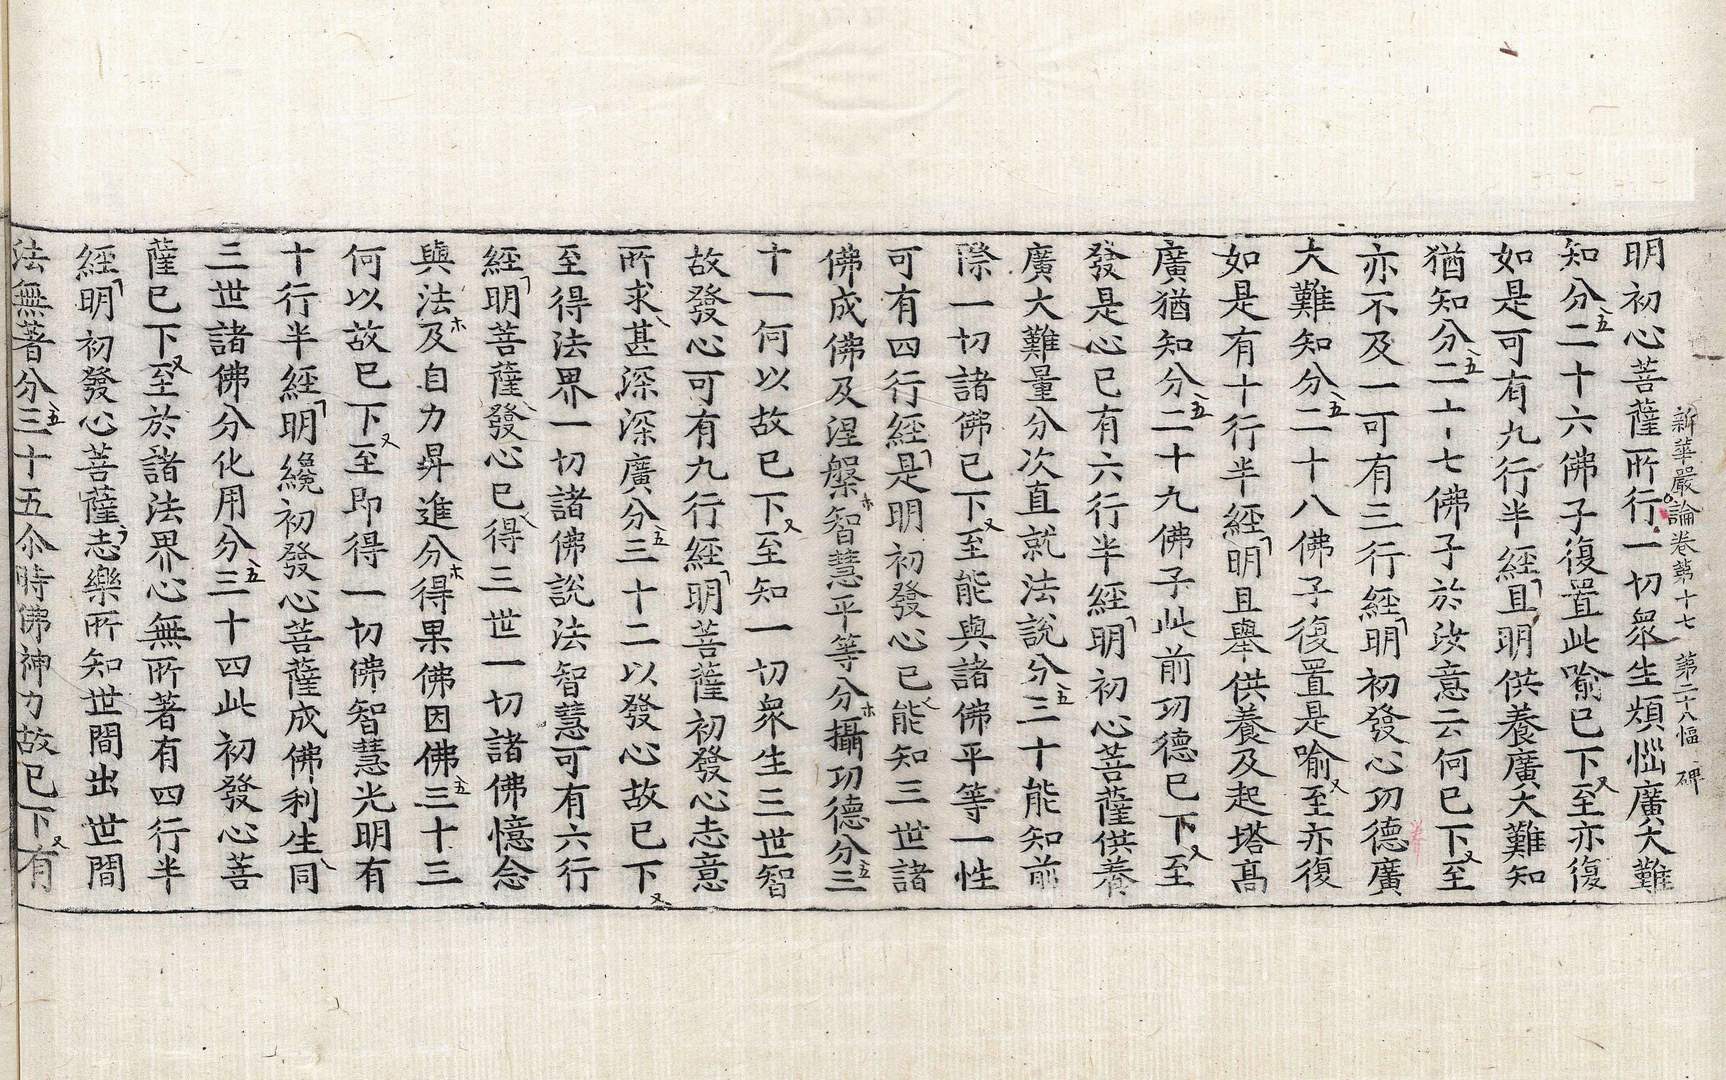 新華嚴論卷第十七　第二十八幅　碑
明初心菩薩所行一切衆生煩惱廣大難
知分二十六佛子復置此喻已下至亦復
如是可有九行半經且明供養廣大難知
猶知分二十七佛子於汝意云何已下至
亦不及一可有三行經明初發心功德廣
大難知分二十八佛子復置是喻至亦復
如是有十行半經明且舉供養及起塔高
廣猶知分二十九佛子此前功德已下至
發是心已有六行半經明初心菩薩供養
廣大難量分次直就法說分三十能知前
際一切諸佛已下至能與諸佛平等一性
可有四行經是明初發心已能知三世諸
佛成佛及涅槃智慧平等分攝功德分三
十一何以故已下至知一切衆生三世智
故發心可有九行經明菩薩初發心志意
所求甚深深廣分三十二以發心故已下
至得法界一切諸佛說法智慧可有六行
經明菩薩發心已得三世一切諸佛憶念
與法及自力昇進分得果佛因佛三十三
何以故已下至即得一切佛智慧光明有
十行半經明纔初發心菩薩成佛利生同
三世諸佛分化用分三十四此初發心菩
薩已下至於諸法界心無所著有四行半
經明初發心菩薩志樂所知世間出世間
法無著分三十五尒時佛神力故已下有